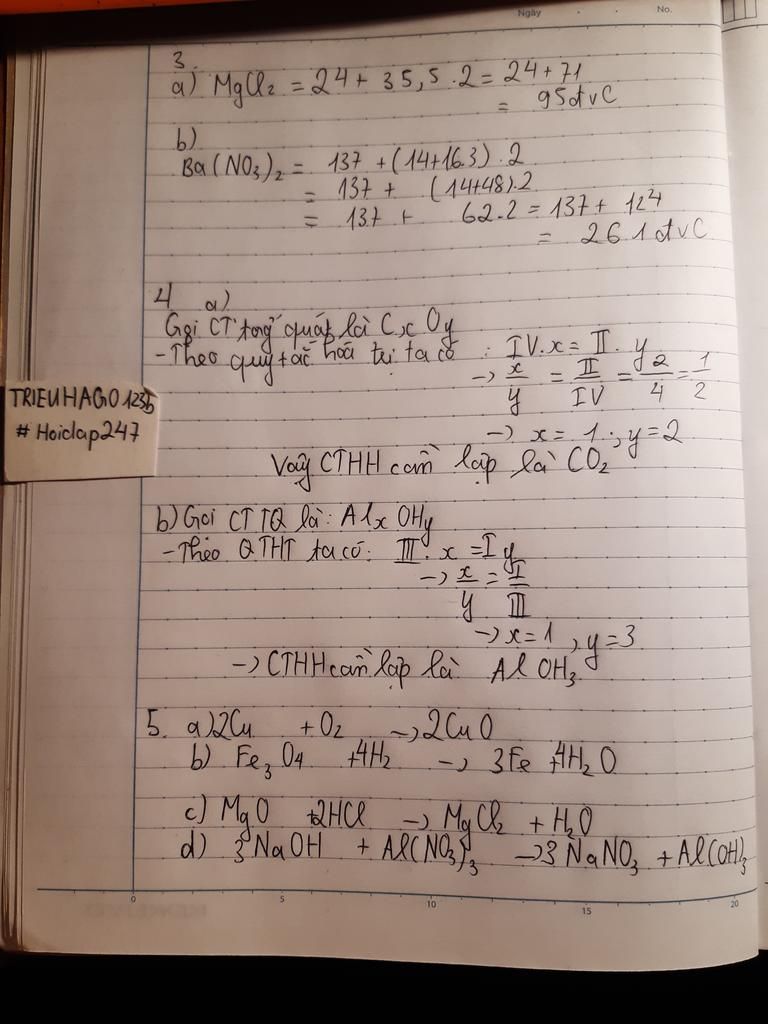 Ngày
No.
3.
a) MgCl₂ = 24 + 35,5 . 2 = 24 + 71
= 95đvC
b)
Ba(NO₃)₂ = 137 + (14+16.3) . 2
= 137 + (14+48).2
= 137 + 62.2 = 137 + 124
= 261 đvC
4 a)
Gọi CT tổng quát là CxOy
- Theo quy tắc hóa trị ta có : IV.x = II. y
→ x/y = II/IV = 2/4 = 1/2
→ x = 1 ; y = 2
Vậy CTHH cần lập là CO₂
TRIEUHAGO1235
# Hoidap247
b) Gọi CTTQ là: AlxOHy
- Theo QTHT ta có: III. x = I y
→ x/y = I/III
→ x=1 , y=3
→ CTHH cần lập là AlOH₃
5. a) 2Cu + O₂ → 2CuO
b) Fe₃O₄ + 4H₂ → 3Fe + 4H₂O
c) MgO + 2HCl → MgCl₂ + H₂O
d) 3NaOH + Al(NO₃)₃ → 3NaNO₃ + Al(OH)₃
0 5 10 15 20